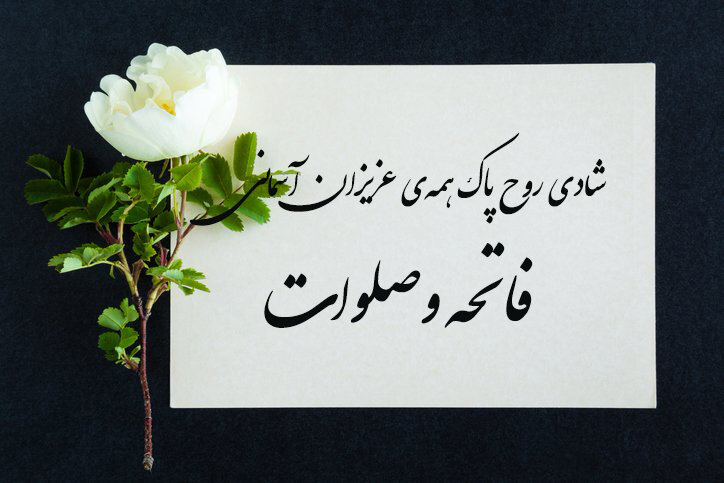 شادی روح پاک همه‌ی عزیزان آسمانی
فاتحه و صلوات